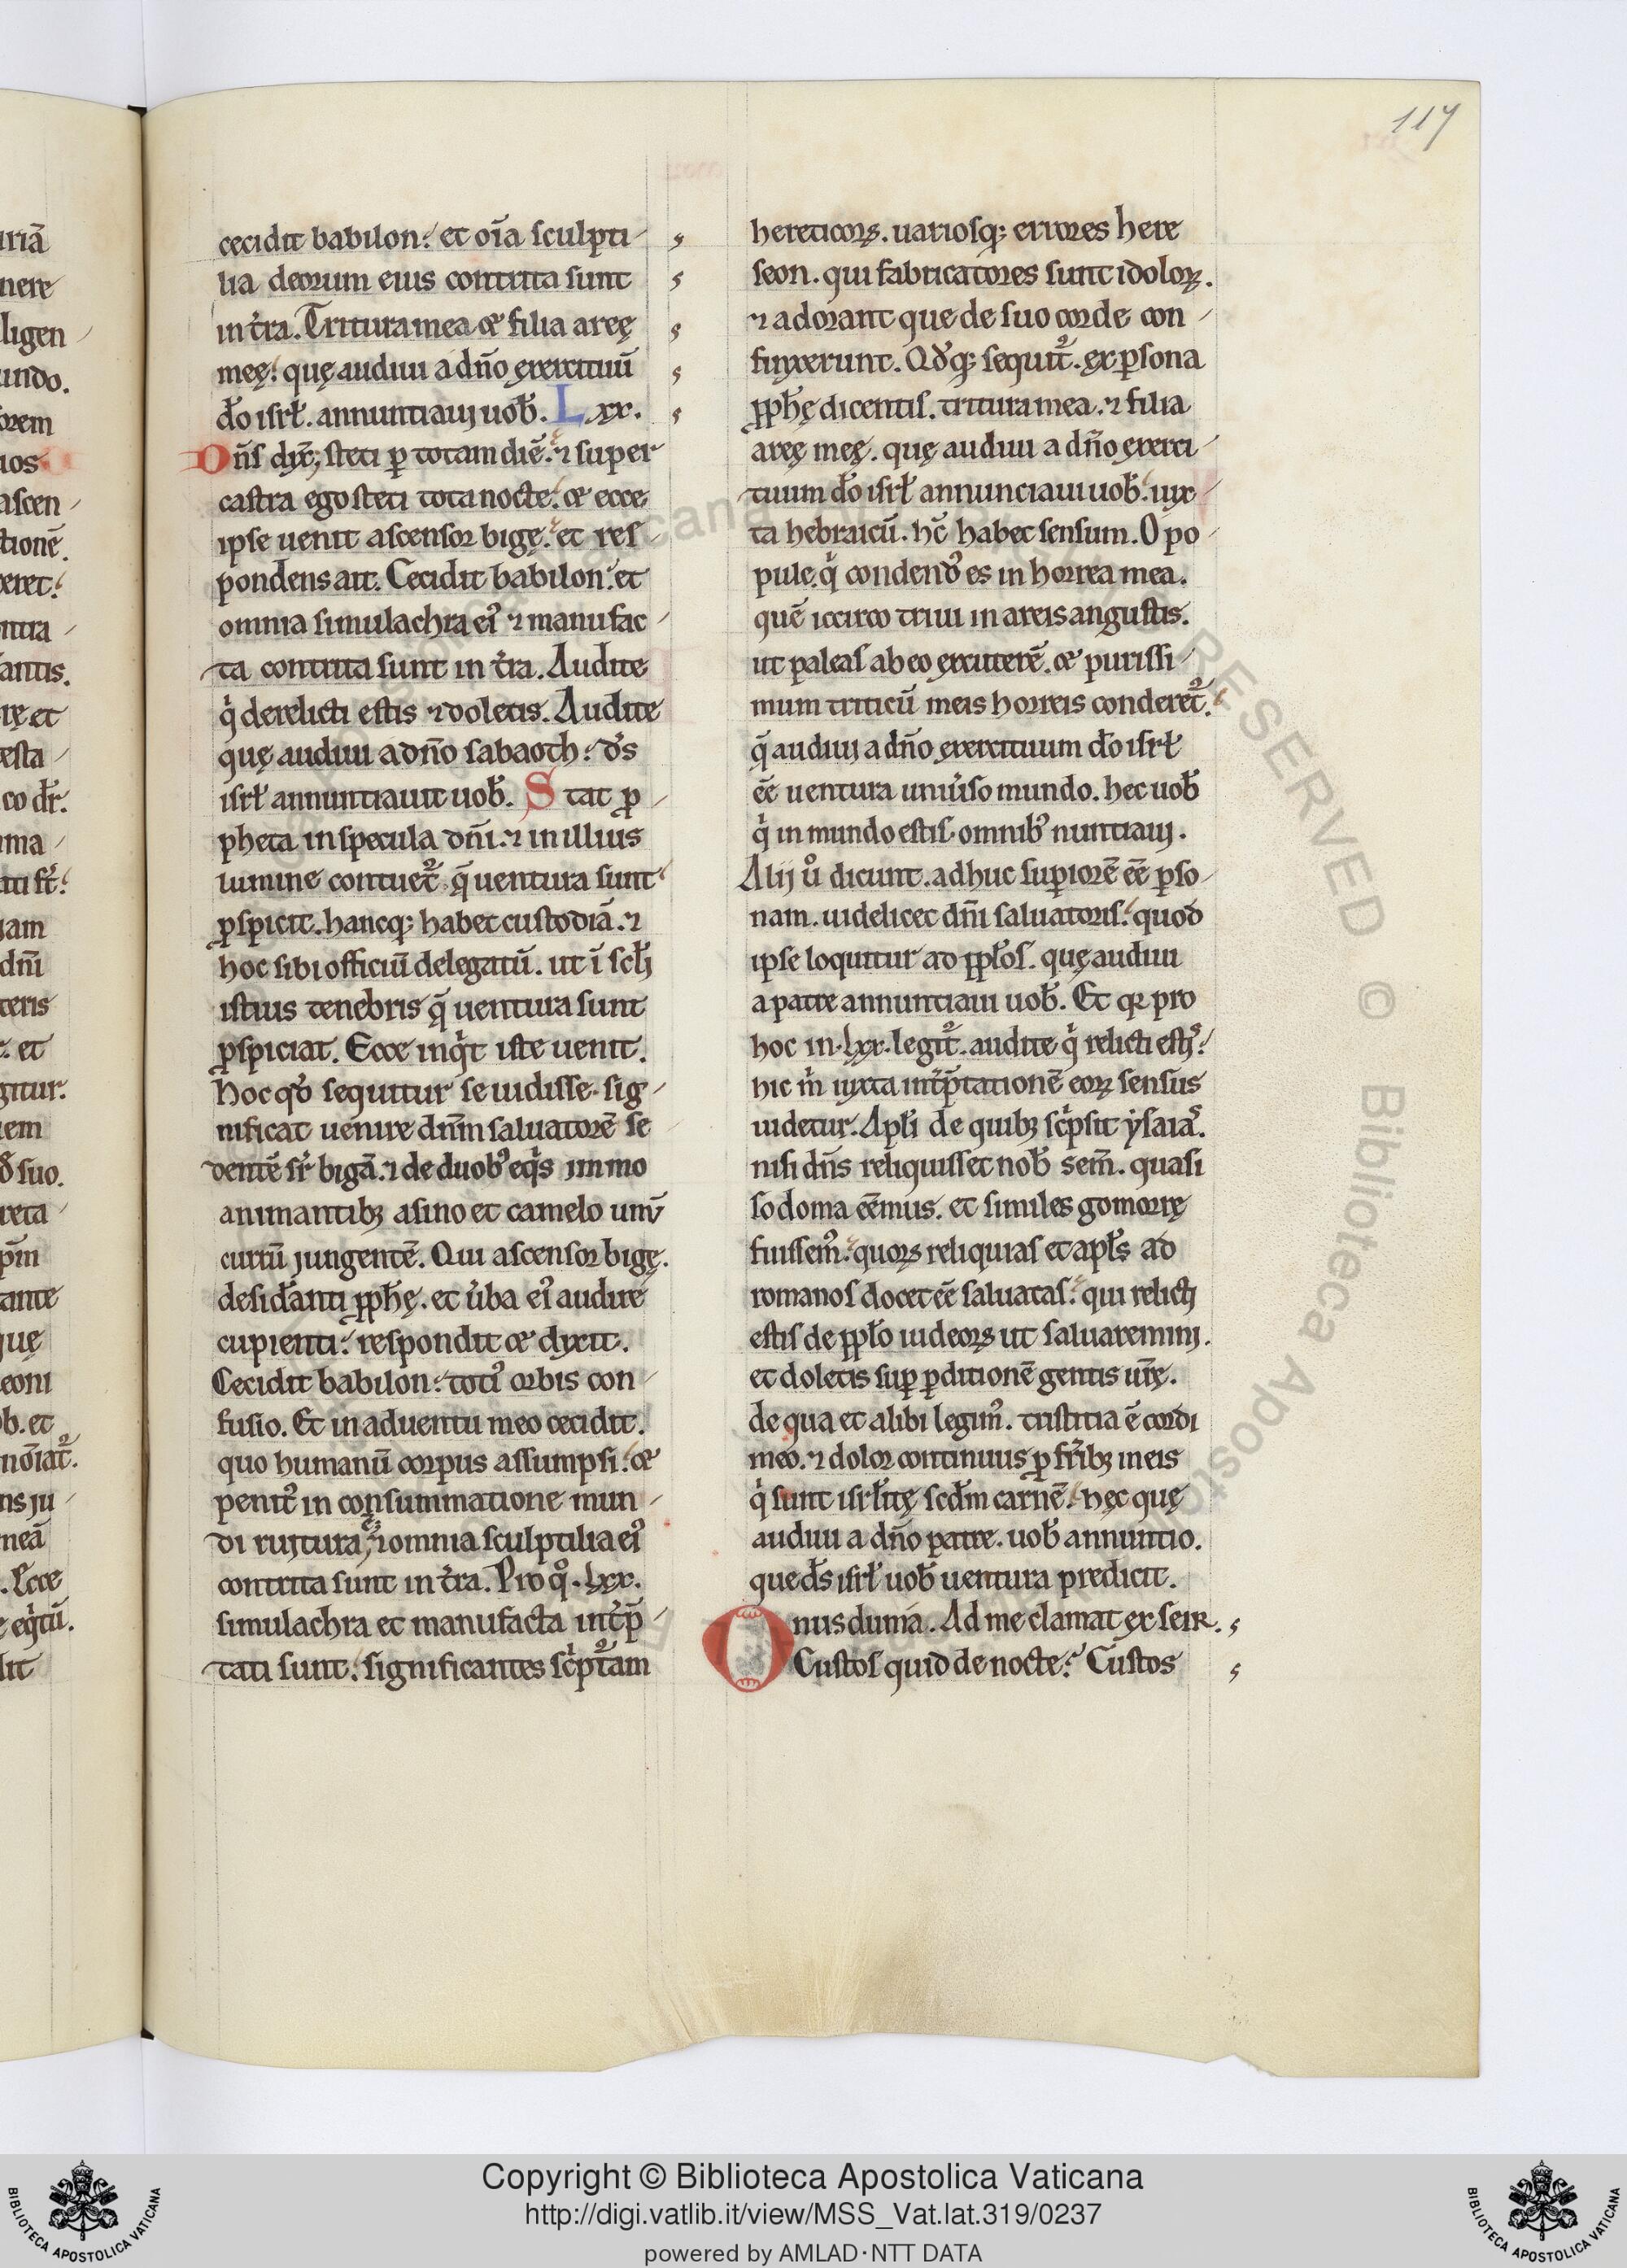 117
cecidit babilon. et oīa sculpti-
lia deorum eius contrita sunt
in t̉ra. Trituramea & filia areę
meę. quę audiui a dño exercituū
dōo isrł. annuntiauį uob̄. Lxx.
Dñs dix̄; steti ꝑ totam diē. ⁊ super
castra ego steti tota nocte. & ecce
ipse uenit ascensor bigę. et res-
pondens ait. Cecidit babilon. et
omnia simulachra ei⁹ ⁊ manufac-
ta contrita sunt in t̉ra. Audite
qͥ derelicti estis ⁊ doletis. Audite
quę audiui a dn̄o sabaoth. d̄s
isrł annuntiauit uob̄. Stat ꝓ-
pheta in specula dn̄i. ⁊ in illius
lumine contuet᷑. q̄ uentura sunt
ꝑspicit. hancq; habet custodiā. ⁊
hoc sibi officiū delegatū. ut ī scłi
istius tenebris q̄ uentura sunt
ꝑspiciat. Ecce inqͥt iste uenit.
Hoc qͦd sequitur se uidisse. sig-
nificat uenire dn̄m saluatorē se
dentē sr̄ bigā. ⁊ de duob⁹ eqͥs immo
animantibꝫ asino et camelo unū
currū jungentē. Qui ascensor bigę.
desid̉anti ꝓph̄ę. et ủba ei⁹ audire
cupienti. respondit & dixit.
Cecidit babilon. toti⁹ orbis con-
fusio. Et in aduentu meo cecidit.
quo humanū corpus assumpsi. &
penit⁹ in consummatione mun-
di ruįtura ē. ⁊ omnia sculptilia ei⁹
contrita sunt in t̉ra. Pro qͦ. lxx.
simulachra et manufacta int̉p̄-
tati sunt. significantes sc̉pt᷑am
hereticoꝝ. uariosq; errores here
seon. qui fabricatores sunt idoloꝝ.
⁊ adorant que de suo corde con-
finxerunt. Qd̉q; sequit᷑. ex ꝑsona
ꝓph̄ę dicentis. tritura mea. ⁊ filia
areę meę. quę audiui a dn̄o exerci-
tuum dō isrł annunciaui uob̄. iux-
ta hebraicū. hc̄ habet sensum. O po-
pule. qͥ condend⁹ es in horrea mea.
quē iccirco triui in areis angustis.
ut paleas ab eo excuterē. & purissi-
mum triticū meis horreis conderet᷑.
q̄ audiui a dn̄o exercituum dō isrł
ēē uentura uniủso mundo. hec uob̄
qͥ in mundo estis omnib⁹ nuntiauį.
Alij ů dicunt. adhuc superiorē ēē ꝑso-
nam. uidelicet dn̄i saluatoris. quod
ipse loquitur ad ꝓpłos. quę audiui
a patre annuntiaui uob̄. Et qꝛ pro
hoc in. lxx. legit᷑. audite qͥ relicti estꝭ.
hic m̉ iuxta int̉p̄tationē eoꝝ sensus
uidetur. Apłi de quibꝫ sc̉psit ysaiaˢ.
nisi dn̄s reliquisset nob̄ sem̄. quasi
sodoma eēmus. et similes gomorrę
fuissem⁹. quoꝝ reliquias et apłs ad
romanos docet ēē saluatas. qui relictį
estis de ꝓpło iudeoꝝ ut saluareminį.
et doletis suꝑ ꝑditionē gentis ur̄ę.
de qua et alibi legim⁹. tristitia ē cordi
meo. ⁊ dolor continuus ꝓ fr̄ibꝫ meis
qͥ sunt isrłitę scd̄m carnē. hęc quę
audiui a dn̄o patre. uob̄ annuntio.
que d̄s isrł uob̄ uentura predicit.
Onus duma. Ad me clamat ex seiR.
Custos quid de nocte. Custos
Copyright © Biblioteca Apostolica Vaticana
http://digi.vatlib.it/view/MSS_Vat.lat.319/0237
powered by AMLAD·NTT DATA
BIBLIOTECA APOSTOLICA VATICANA
BIBLIOTECA APOSTOLICA VATICANA